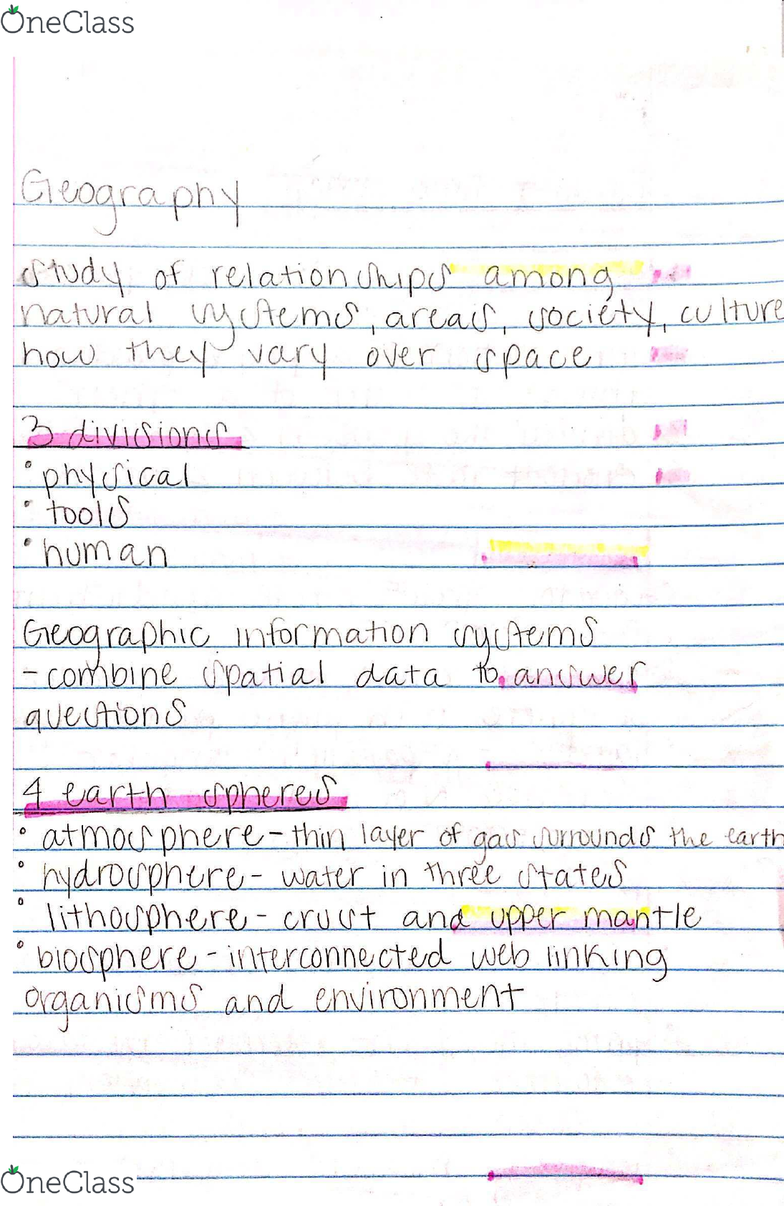 OneClass
Geography
study of relationships among
natural systems, areas, society, culture
how they vary over space
3 divisions
• physical
• tools
• human
Geographic information systems
- combine spatial data to answer
questions
4 earth spheres
• atmosphere - thin layer of gas surrounds the earth
• hydrosphere - water in three states
• lithosphere - crust and upper mantle
• biosphere - interconnected web linking
organisms and environment
OneClass